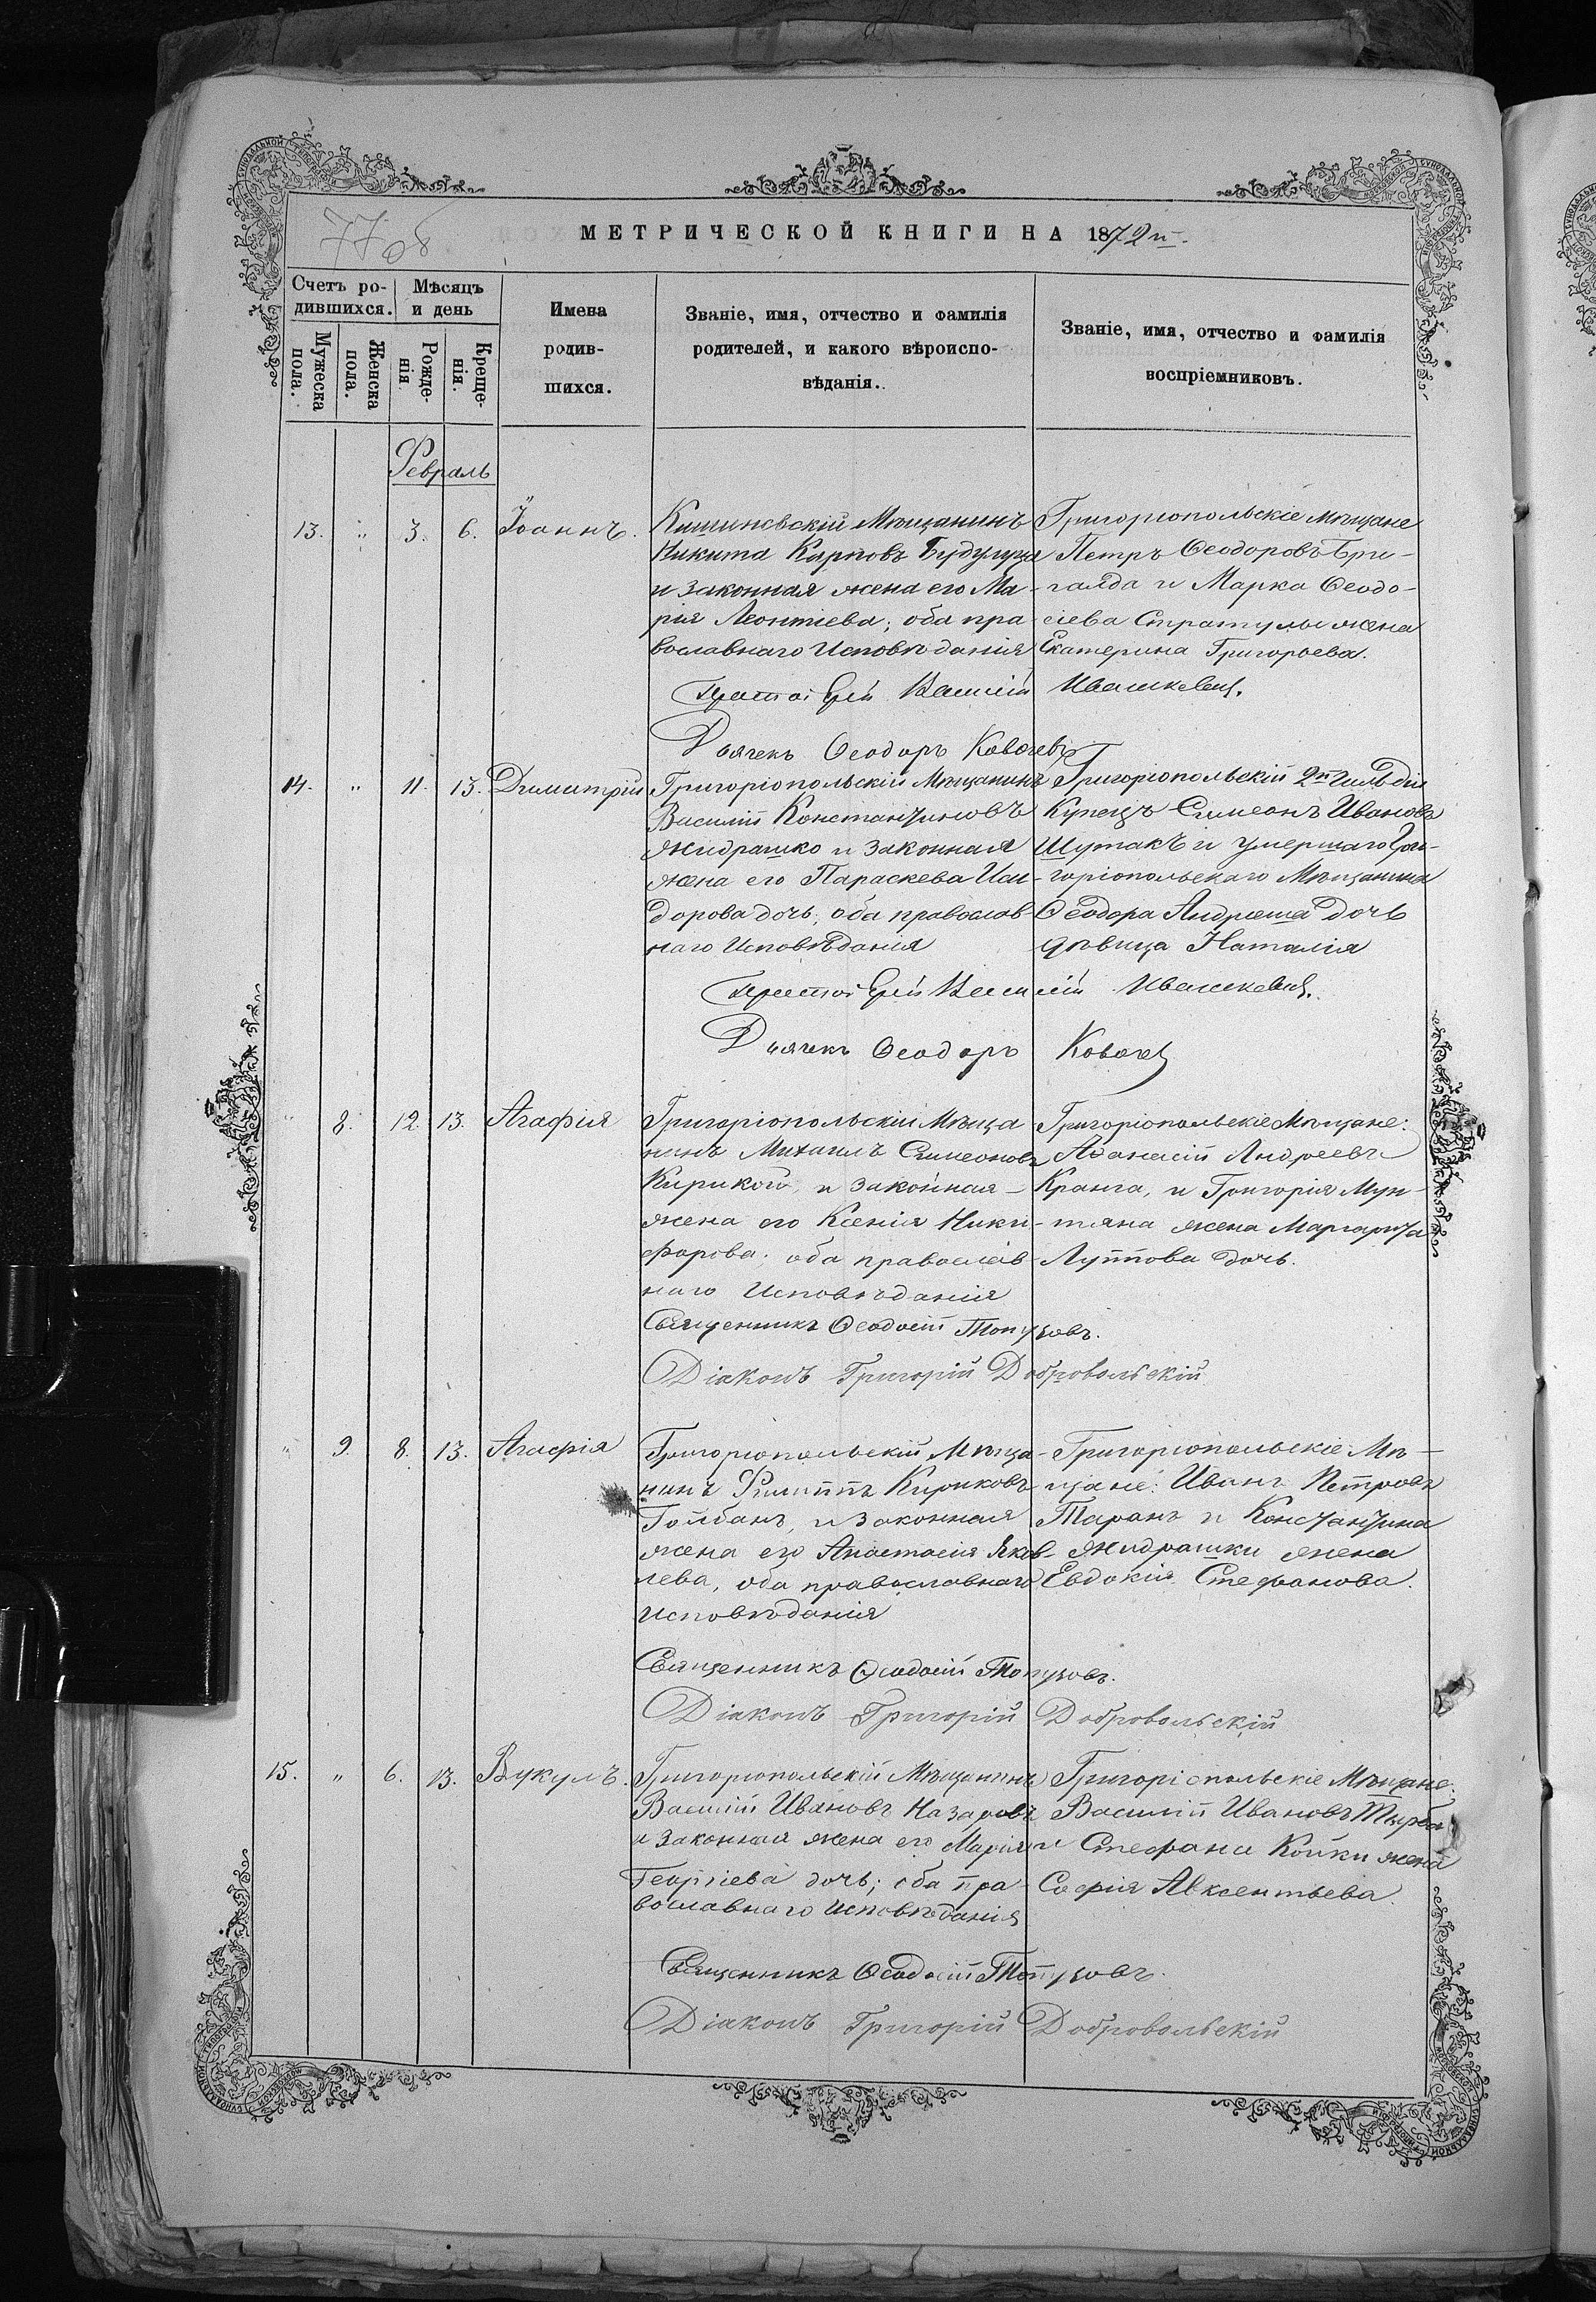 77 об
МЕТРИЧЕСКОЙ КНИГИ НА 1872 й.
Счетъ ро-
дившихся.
Мѣсяцъ
и день
Мужеска
пола.
Женска
пола.
Рожде-
нія
Креще-
нія.
Имена
родив-
шихся.
Званіе, имя, отчество и фамилія
родителей, и какого вѣроиспо-
вѣданія.
Званіе, имя, отчество и фамилія
воспріемниковъ.
Февраль
13. " 3. 6. Іоаннъ.
Кишиневскій Мѣщанинъ
Никита Карповъ Будулуца
и законная жена его Ма-
рія Леонтіева; оба пра-
вославнаго Исповѣданія
Григоріопольскіе мѣщане
Петръ Ѳеодоровъ Бри-
гаяда и Марка Ѳеодо-
сіева Стратулы жена
Екатерина Григорьева.
Протоіерей Василій Ивашкевич.
Дьячекъ Ѳеодоръ Ковачевъ
14. " 11. 13. Димитрій
Григоріопольскій Мѣщанинъ
Василій Константиновъ
Жидрашко и законная
жена его Параскева Иси-
дорова дочь, оба православ-
наго Исповѣданія
Григоріопольскій 2й гильдіи
Купецъ Симеонъ Ивановъ
Шутакъ и умершаго Гри-
горіопольскаго Мѣщанина
Ѳеодора Андреяша дочь
дѣвица Наталія
Протоіерей Василій Ивашкевич.
Дьячекъ Ѳеодоръ Ковачев
" 8. 12. 13. Агафія
Григоріопольскій Мѣща
нинъ Михаилъ Симеоновъ
Кирикой, и законная
жена его Ксенія Ники-
форова; оба православ-
наго Исповѣданія
Григоріопольскіе Мѣщане:
Аѳанасій Андреевъ
Кранга, и Григорія Мун-
тяна жена Маргарита
Луппова дочь.
Священникъ Ѳеодосій Топузовъ.
Діаконъ Григорій Добровольскій
" 9. 8. 13. Агафія
Григоріопольскій Мѣща-
нинъ Филиппъ Кириковъ
Гойбанъ, и законная
жена его Анастасія Яков-
лева, оба православнаго
исповѣданія
Григоріопольскіе Мѣ-
щане: Иванъ Петровъ
Таранъ и Константина
Жидрашки жена
Евдокія Стефанова.
Священникъ Ѳеодосій Топузовъ.
Діаконъ Григорій Добровольскій
15. " 6. 13. Вукулъ.
Григоріопольскій Мѣщанинъ
Василій Ивановъ Назаровъ
и законная жена его Марія
Георгіева дочь; оба пра-
вославнаго исповѣданія
Григоріопольскіе Мѣщане:
Василій Ивановъ Тырба
и Стефана Койки жена
Софія Авксентьева
Священникъ Ѳеодосій Топузовъ.
Діаконъ Григорій Добровольскій